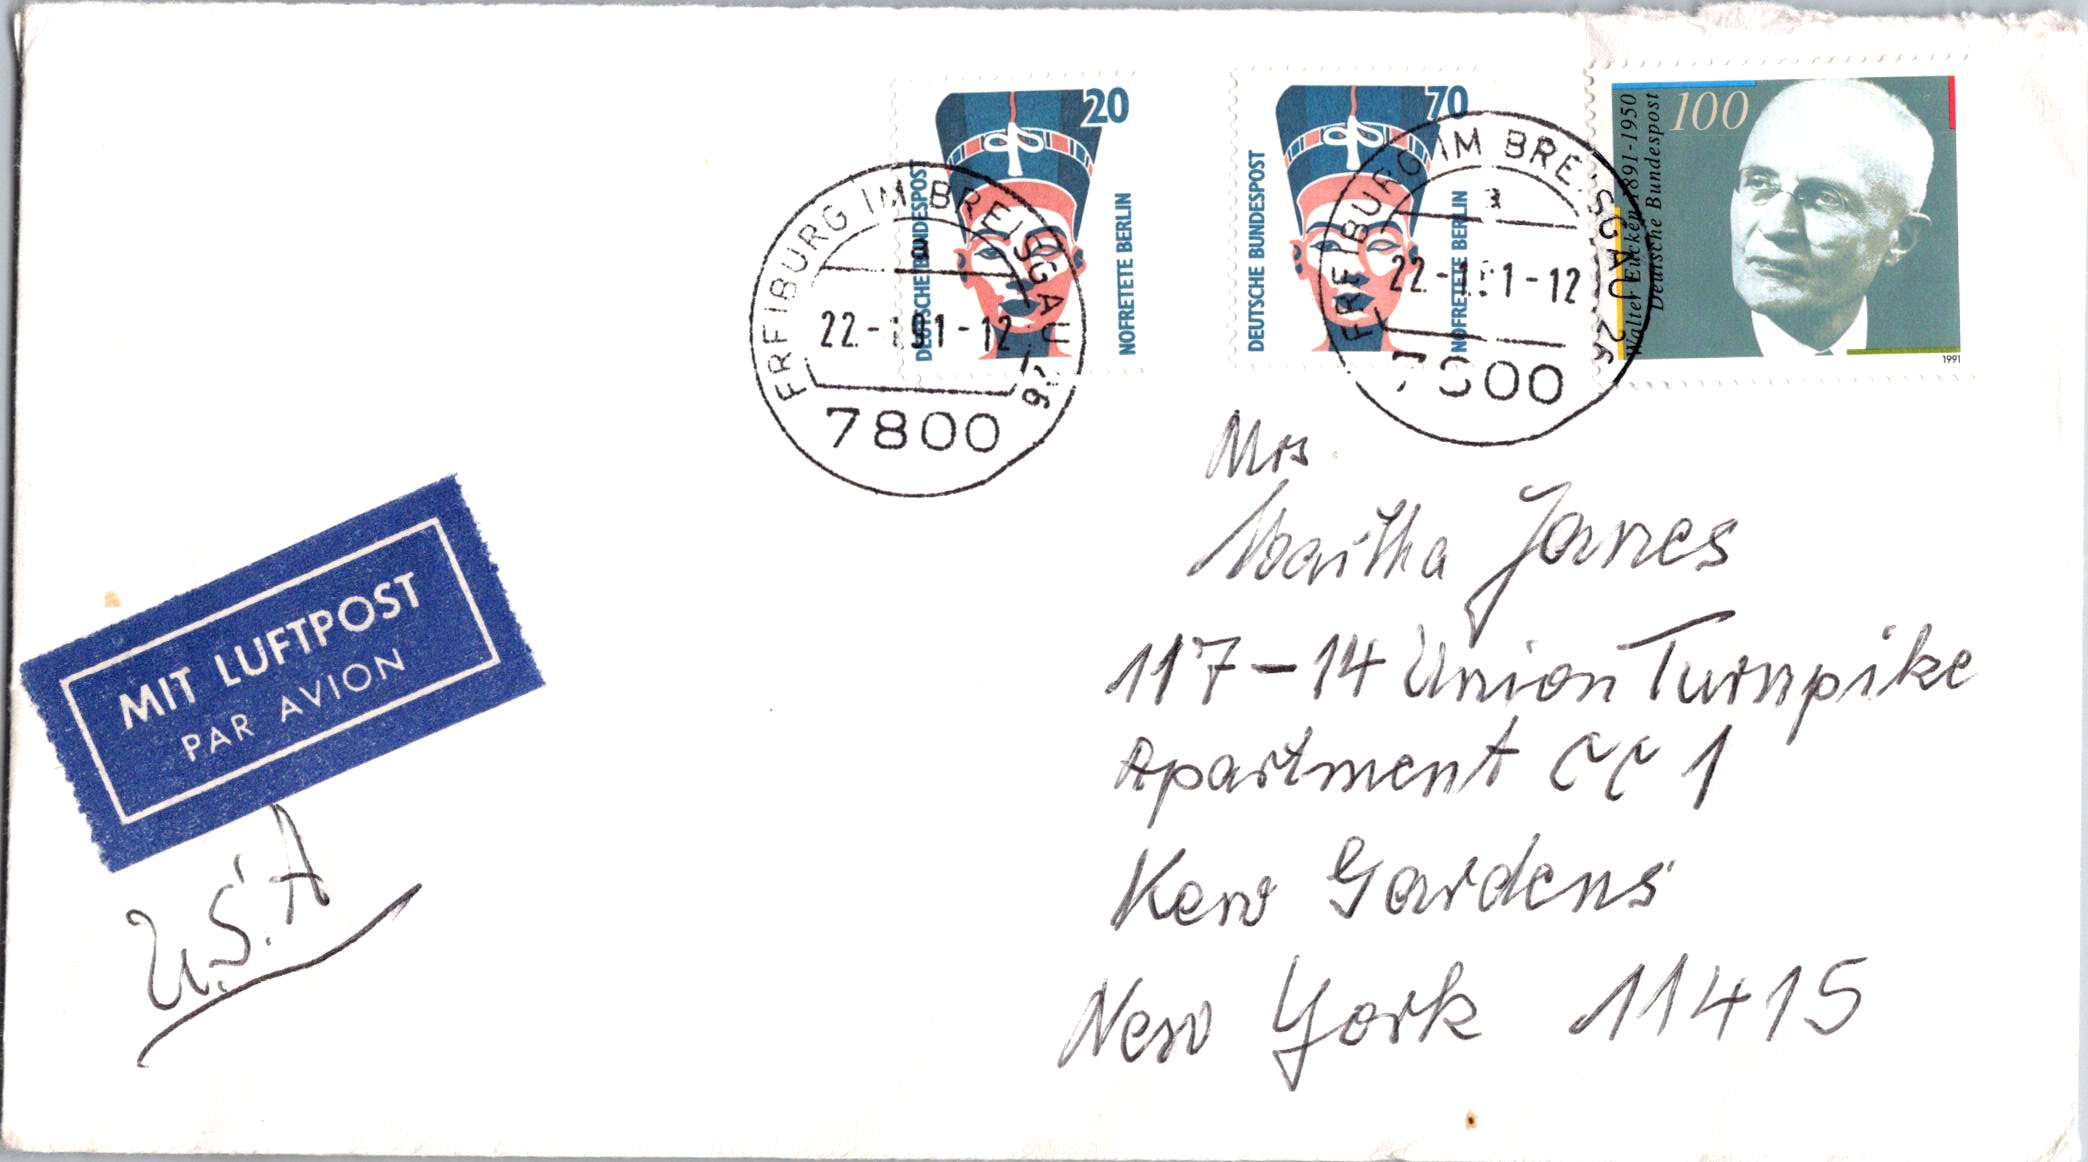 20
DEUTSCHE BUNDESPOST
NOFRETETE BERLIN
70
DEUTSCHE BUNDESPOST
NOFRETETE BERLIN
100
Walter Eucken 1891-1950
Deutsche Bundespost
1991
FREIBURG IM BREISGAU 26
a
22.-1.91-12
7800
FREIBURG IM BREISGAU 26
a
22.-1.91-12
7800
MIT LUFTPOST
PAR AVION
U.S.A
Mrs.
Martha Janes
117-14 Union Turnpike
Apartment CC 1
Kew Gardens
New York 11415